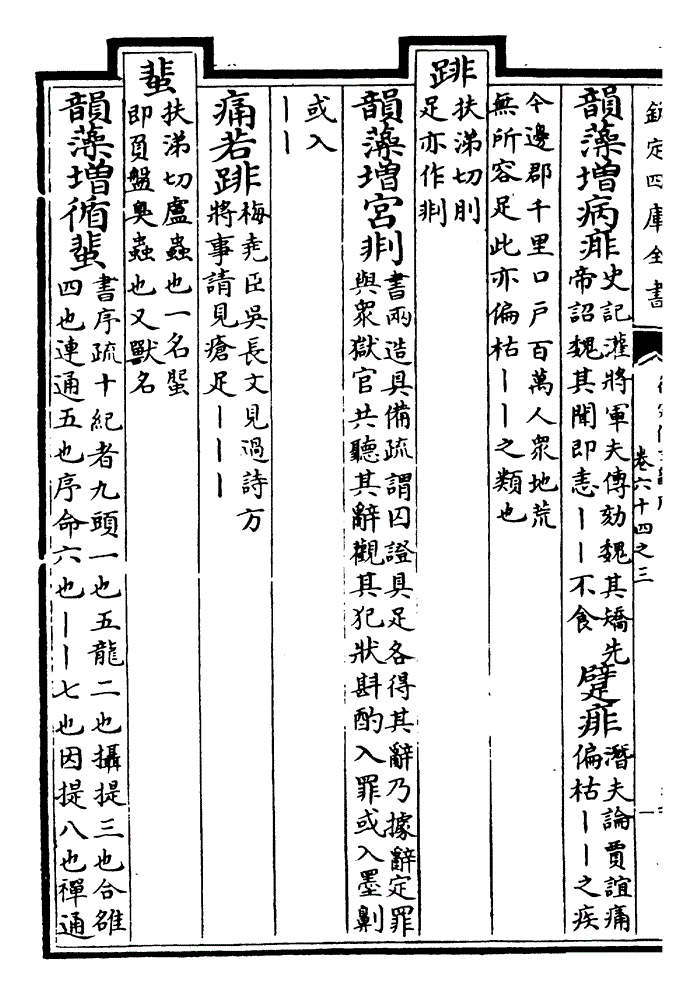 欽定四庫全書
卷六十四之三
韻藻増病痱
史記灌將軍夫傳劾魏其矯先
帝詔魏其聞即恚丨丨不食
躄痱
潛夫論賈誼痛
偏枯丨丨之疾
今邊郡千里口戶百萬人衆地荒
無所容足此亦偏枯丨丨之類也
跸
扶涕切刖
足亦作剕
韻藻増宮剕
書兩造具備疏謂囚證具足各得其辭乃據辭定罪
與衆獄官共聽其辭觀其犯狀斟酌入罪或入墨劓
或入
丨丨
痛若跸
梅堯臣吳長文見過詩方
將事請見瘡足丨丨丨
蜚
扶涕切盧蟲也一名蜰
即負盤臭蟲也又獸名
韻藻増循蜚
書序疏十紀者九頭一也五龍二也攝提三也合雒
四也連通五也序命六也丨丨七也因提八也禪通